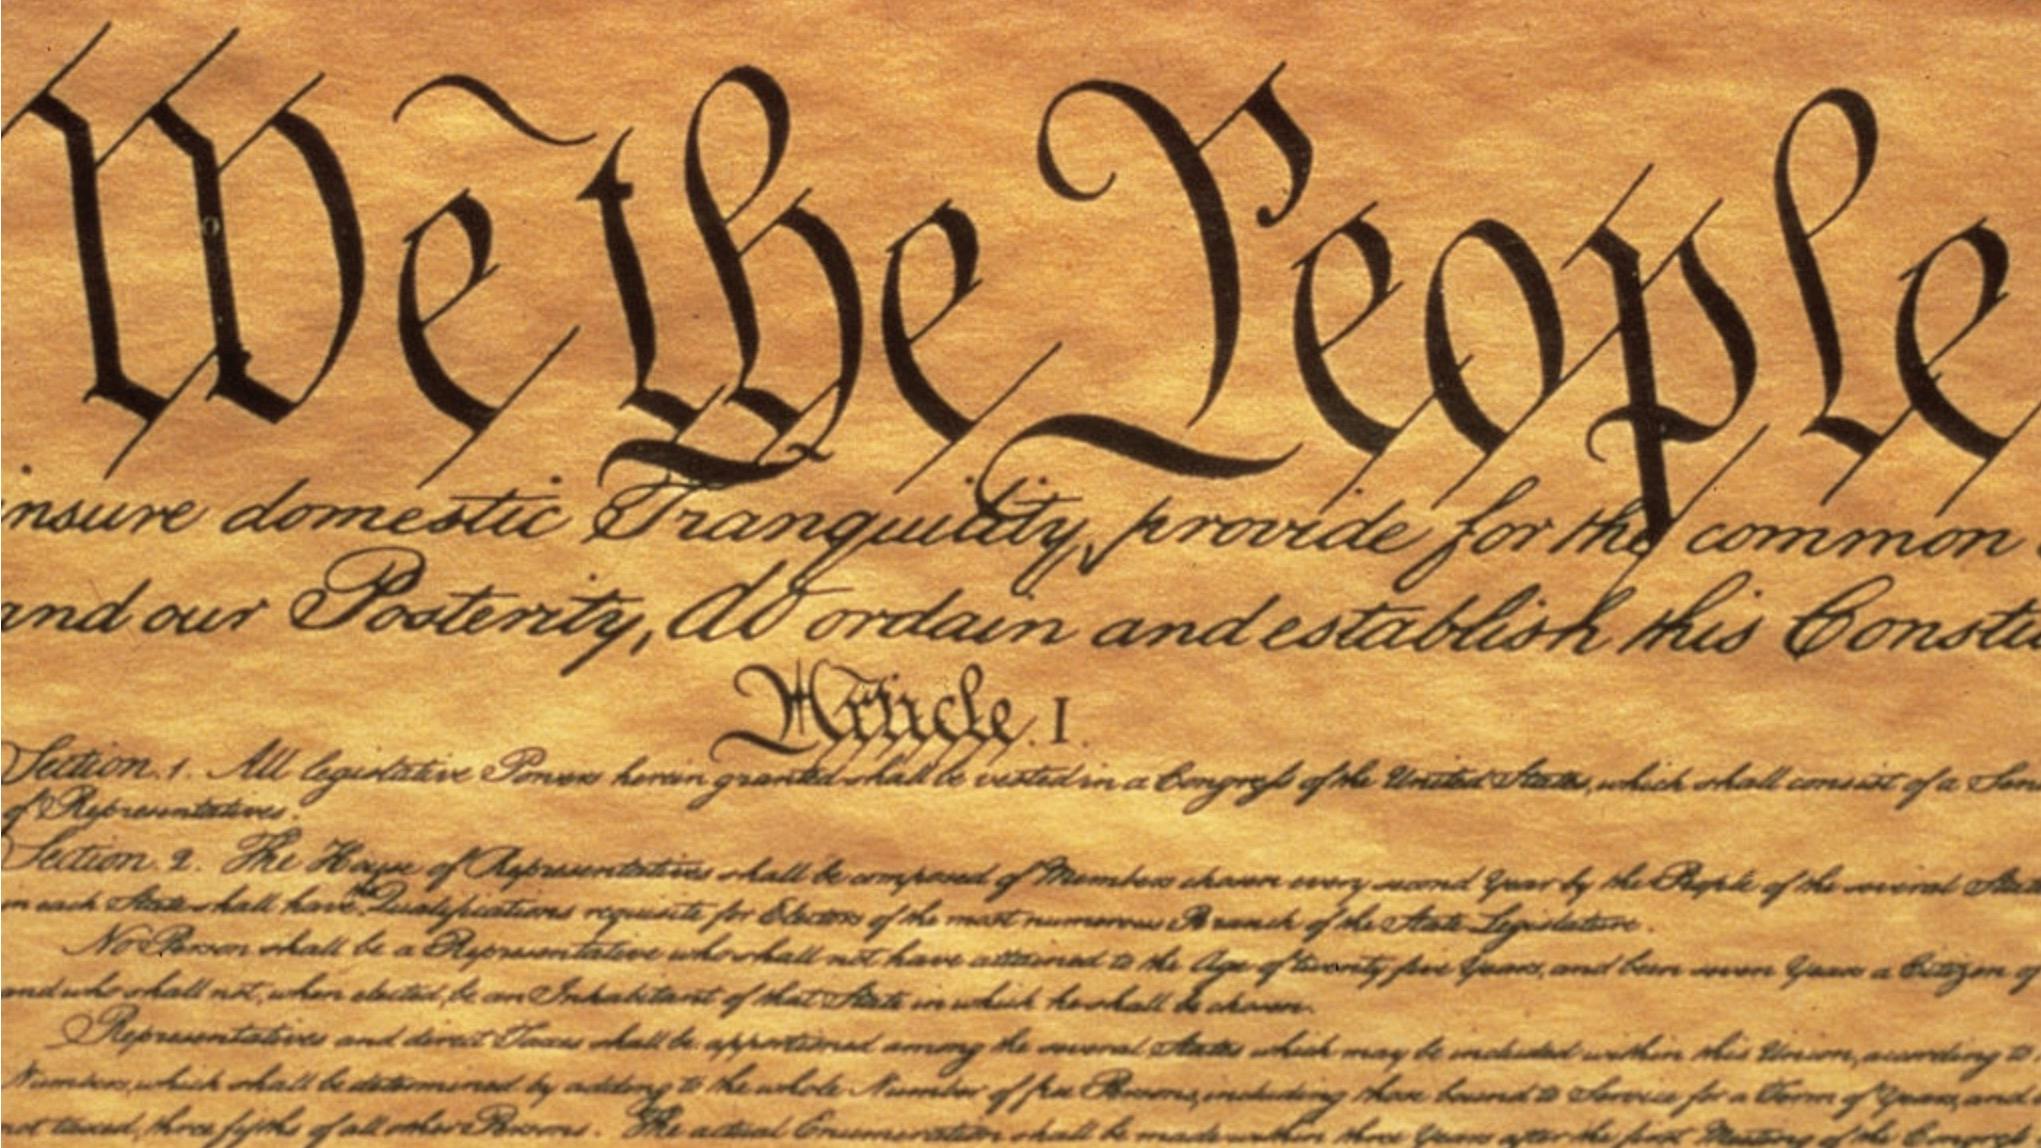 We the People
insure domestic Tranquility, provide for the common
and our Posterity, do ordain and establish this Constitu
Article. I.
Section. 1. All legislative Powers herein granted shall be vested in a Congress of the United States, which shall consist of a Sen
of Representatives.
Section. 2. The House of Representatives shall be composed of Members chosen every second Year by the People of the several Stat
in each State shall have the Qualifications requisite for Electors of the most numerous Branch of the State Legislature.
No Person shall be a Representative who shall not have attained to the Age of twenty five Years, and been seven Years a Citizen of
and who shall not, when elected, be an Inhabitant of that State in which he shall be chosen.
Representatives and direct Taxes shall be apportioned among the several States which may be included within this Union, according to
Numbers, which shall be determined by adding to the whole Number of free Persons, including those bound to Service for a Term of Years, and
not taxed, three fifths of all other Persons. The actual Enumeration shall be made within three Years after the first Meeting of the Congress